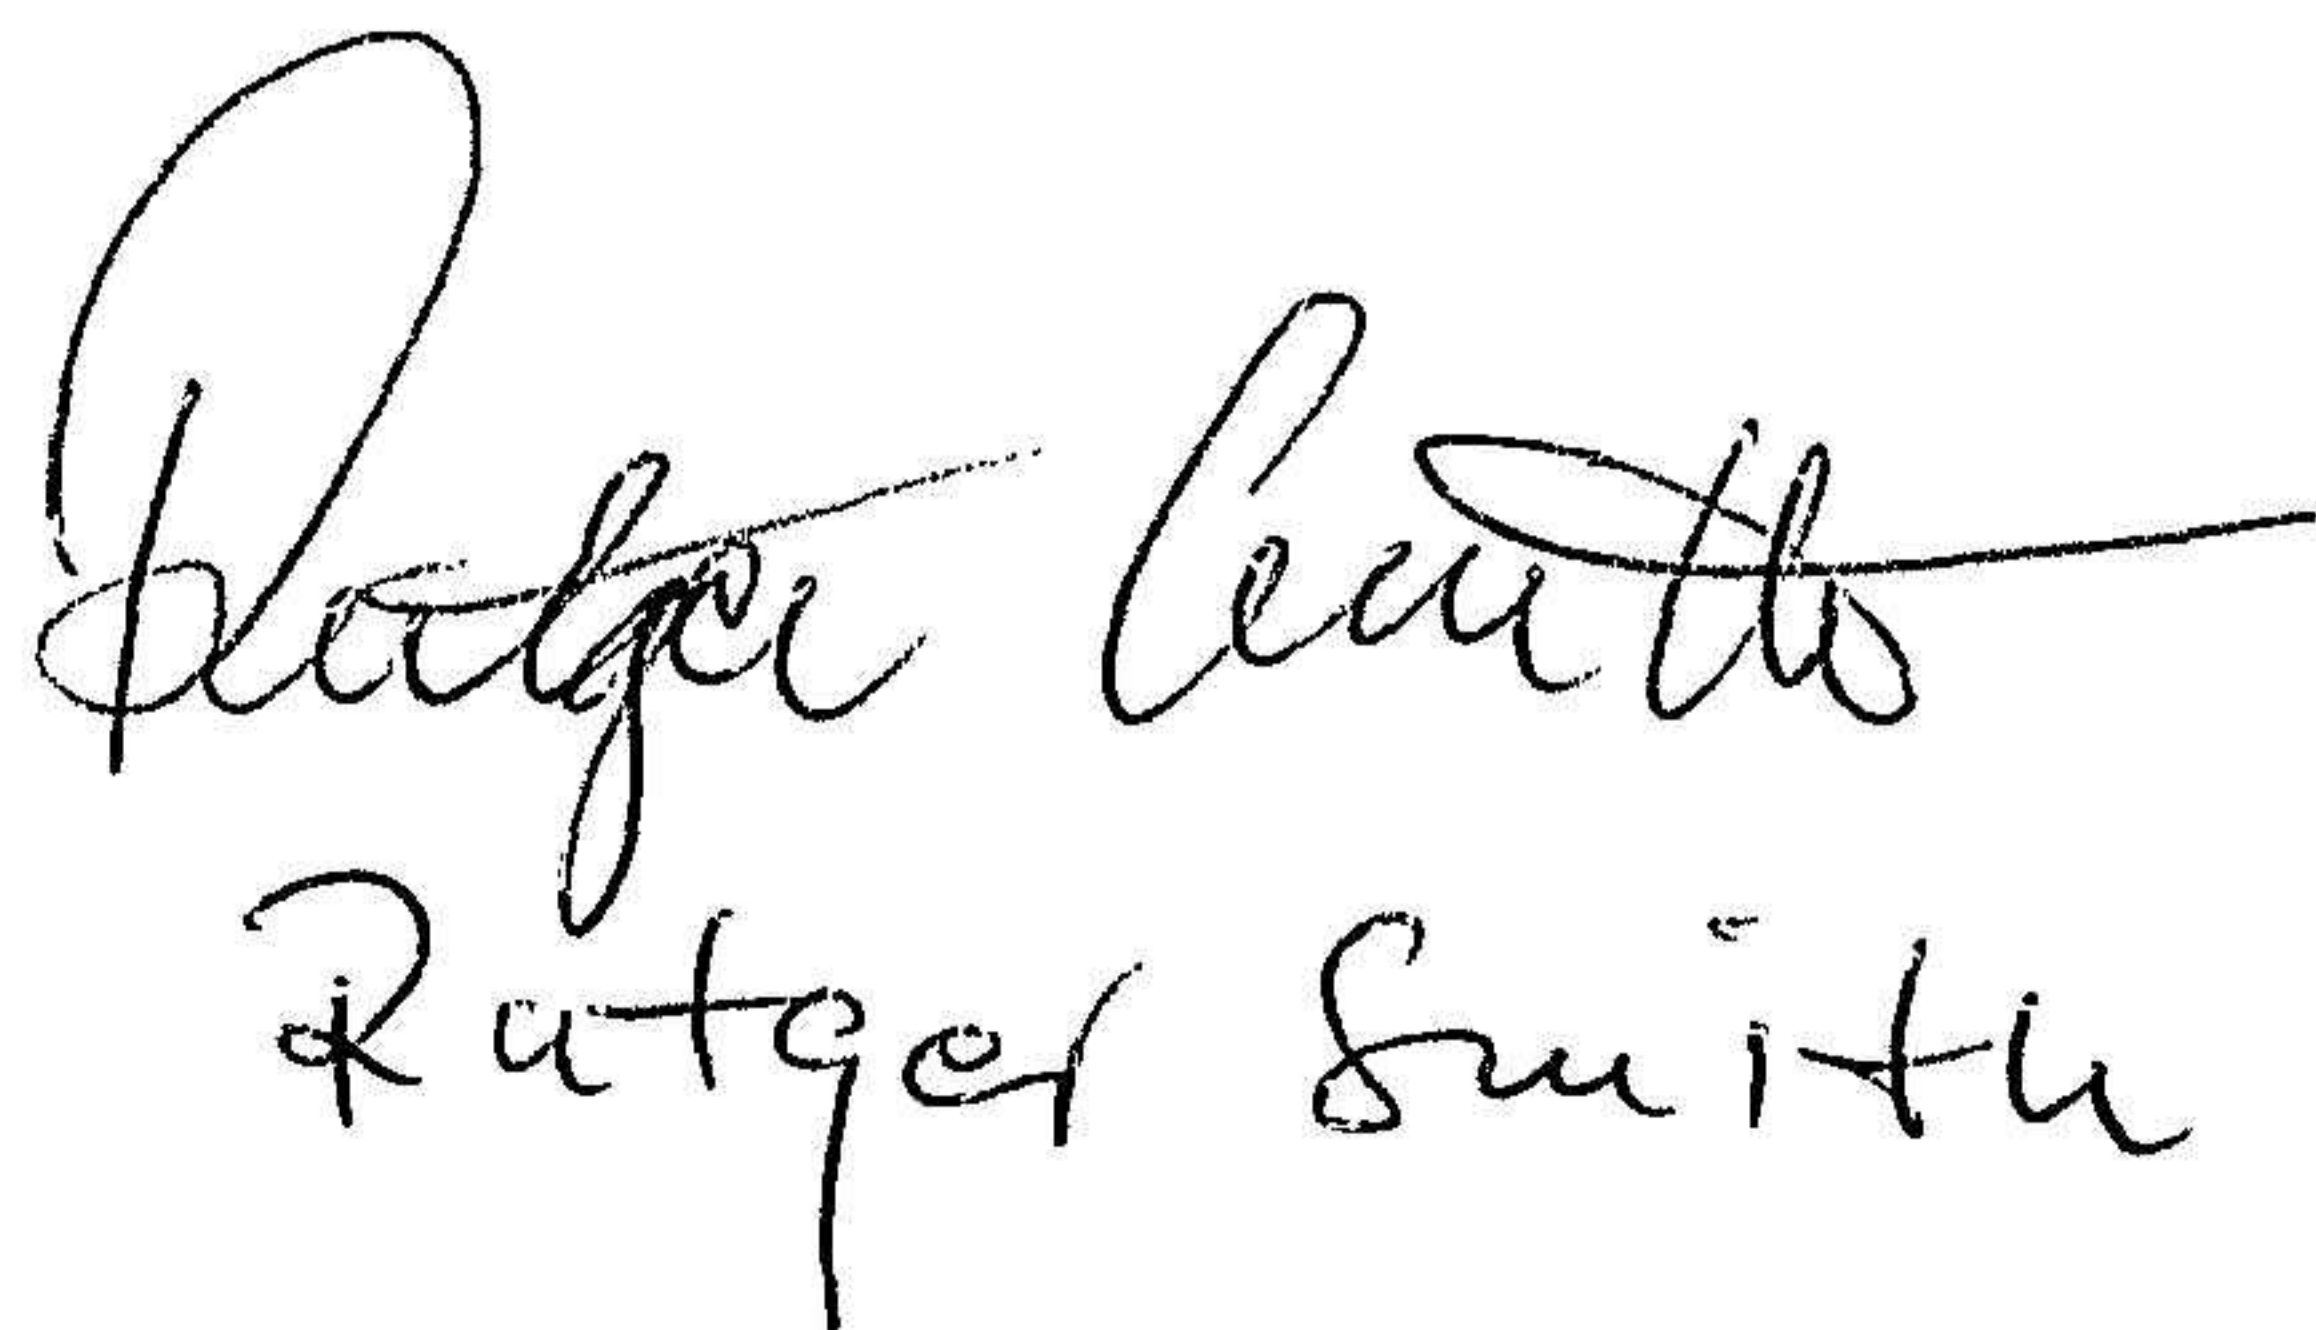 Rutger Smith
Rutger Smith